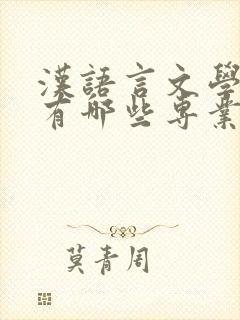 漢語言文學
有哪些專業
莫青周